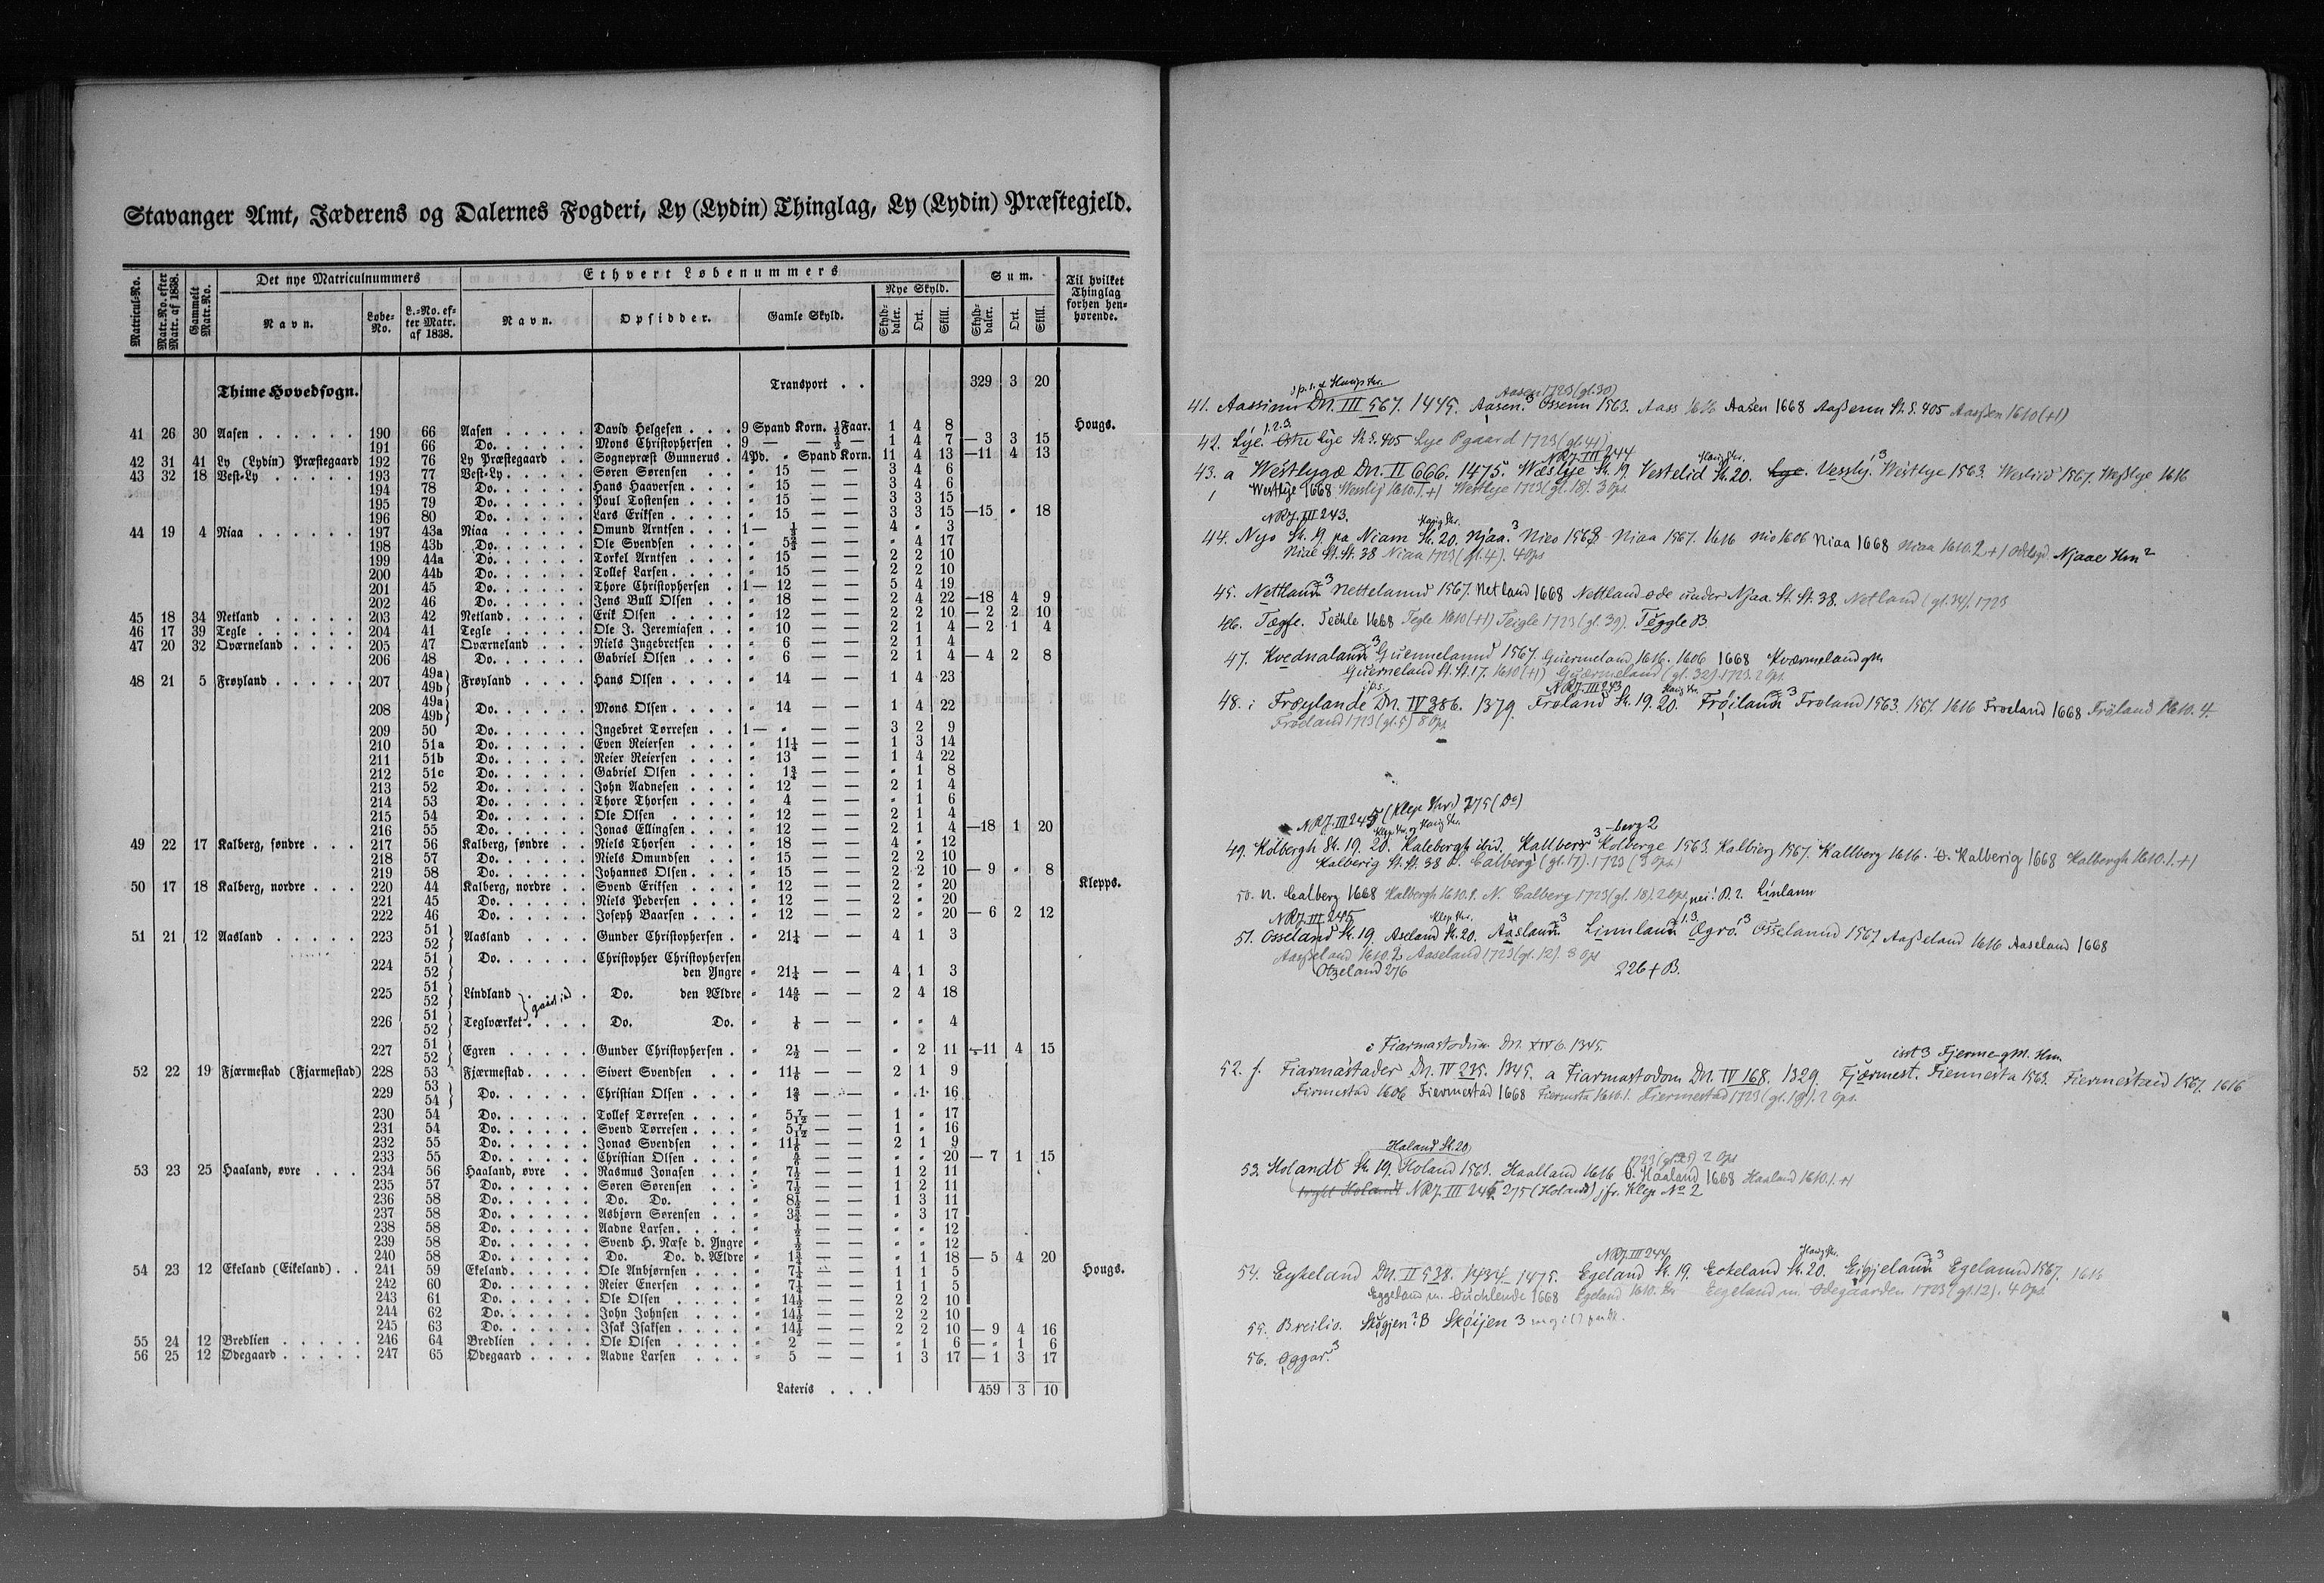 Stavanger Amt, Jæderens og Dalernes Fogderi, Ly (Lydin) Thinglag, Ly (Lydin) Præstegjeld.
Matricul-No. Matr.No. efter Matr. af 1838. Gammelt Matr.No. Det nye Matriculnummers Ethvert Løbenummers Sum. Til hvilket Thinglag forhen henhørende.
Navn. Løbe-No. L.-No. efter Matr. af 1838. Navn. Opsidder. Gamle Skyld. Nye Skyld. Skylddaler. Ort. Skill. Skylddaler. Ort. Skill.
Thime Hovedsogn. Transport . . 329 3 20
41 26 30 Aasen 190 66 Aasen David Helgesen 9 Spand Korn. ½ Faar. 1 4 8 Hougs.
191 66 Do. Mons Christophersen 9 — — ½ — 1 4 7 — 3 3 15
42 31 41 Ly (Lydin) Præstegaard 192 76 Ly Præstegaard Sognepræst Gunnerus 4Pd. " Spand Korn. 11 4 13 —11 4 13
43 32 18 Vest-Ly 193 77 Vest-Ly Søren Sørensen " 15 — — 3 4 6
194 78 Do. Hans Haaversen " 15 — — 3 4 6
195 79 Do. Poul Tostensen " 15 — — 3 3 15
196 80 Do. Lars Eriksen " 15 — — 3 3 15 —15 " 18
44 19 4 Niaa 197 43a Niaa Omund Arntsen 1— — — 4 " 3
198 43b Do. Ole Svendsen — — " 4 17
199 44a Do. Torkel Arntsen " 15 — — 2 2 10
200 44b Do. Tollef Larsen " 15 — — 2 2 10
201 45 Do. Thore Christophersen 1— 12 — — 5 4 19
202 46 Do. Jens Bull Olsen " 18 — — 2 4 22 —18 4 9
45 18 34 Netland 203 42 Netland Erik Olsen " 12 — — 2 2 10 — 2 2 10
46 17 39 Tegle 204 41 Tegle Ole J. Jeremiasen " 10 — — 2 1 4 — 2 1 4
47 20 32 Qværneland 205 47 Qværneland Niels Ingebretsen " 6 — — 2 1 4
206 48 Do. Gabriel Olsen " 6 — — 2 1 4 — 4 2 8
48 21 5 Frøyland 207 49a 49b Frøyland Hans Olsen " 14 — — 1 4 23
208 49a 49b Do. Mons Olsen " 14 — — 1 4 22
209 50 Do. Ingebret Torresen 1— " — — 3 2 9
210 51a Do. Even Reiersen " 11¼ — — 1 3 14
211 51b Do. Reier Reiersen " 13 — — 1 4 22
212 51c Do. Gabriel Olsen " 1¾ — — " 1 8
213 52 Do. John Aadnesen " 12 — — 2 1 4
214 53 Do. Thore Thorsen " 4 — — " 1 6
215 54 Do. Ole Olsen " 12 — — 2 1 4
216 55 Do. Jonas Ellingsen " 12 — — 2 1 4 —18 1 20
49 22 17 Kalberg, søndre 217 56 Kalberg, søndre Niels Thorsen " 18 — — 4 " 12
218 57 Do. Niels Omundsen " 15 — — 2 2 10
219 58 Do. Johannes Olsen " 15 — — 2 2 10 — 9 " 8
50 17 18 Kalberg, nordre 220 44 Kalberg, nordre Svend Eriksen " 12 — — 2 " 20 Klepps.
221 45 Do. Niels Pedersen " 12 — — 2 " 20
222 46 Do. Joseph Baarsen " 12 — — 2 " 20 — 6 2 12
51 21 12 Aasland 223 51 52 Aasland Gunder Christophersen " 21¼ — — 4 1 3
224 51 52 Do. Christopher Christophersen den Yngre " 21¼ — — 4 1 3
225 51 52 Lindland Do. den Ældre — — 2 4 18
226 51 52 Teglværket Do. Do. — — " " 4
227 51 52 Egren Gunder Christophersen " 2½ — — " 2 11 —11 4 15
52 22 19 Fjærmestad (Fjarmestad) 228 53 Fjærmestad Sivert Svendsen — — 2 1 9
229 53 54 Do. Christian Olsen — — " 1 16
230 54 Do. Tollef Torresen " 5 7/12 — — 1 " 17
231 54 Do. Svend Torresen " 5 7/12 — — 1 " 16
232 55 Do. Jonas Svendsen — — 2 1 9
233 55 Do. Christian Olsen — — " " 20 — 7 1 15
53 23 25 Haaland, øvre 234 56 Haaland, øvre Rasmus Jonasen " 7½ — — 1 2 11
235 57 Do. Søren Sørensen " 7½ — — 1 2 11
236 58 Do. Do. Do. " 8½ — — 1 3 11
237 58 Do. Asbjørn Sørensen " 3¾ — — " 3 17
238 58 Do. Aadne Larsen " ½ — — " " 12
239 58 Do. Svend H. Næse d. Yngre " ½ — — " " 12
240 58 Do. Do. Do. d. Ældre — — " 1 18 — 5 4 20
54 23 12 Ekeland (Eikeland) 241 59 Ekeland Ole Anbjørnsen " 7¼ — — 1 1 5 Hougs.
242 60 Do. Reier Enersen " 7¼ — — 1 1 5
243 61 Do. Ole Olsen " 14½ — — 2 2 10
244 62 Do. John Johnsen " 14½ — — 2 2 10
245 63 Do. Isak Isaksen " 14½ — — 2 2 10 — 9 4 16
55 24 12 Bredlien 246 64 Bredlien Ole Olsen " 2 — — " 1 6 — " 1 6
56 25 12 Ødegaard 247 65 Ødegaard Aadne Larsen " 5 — — 1 3 17 — 1 3 17
Lateris . . . 459 3 10
Aasen 1723 (gl. 30)
41. Aassinm Dn. III 567. 1445. Aasen.³ Ossenn 1563. Aass 1616 Aasen 1668 Aaßenn St. S. 405 Aaßen 1610 (+1)
1.2.3.
42. Lýe. Østre Lye St. S. 405 Lye Pgaard 1723 (gl. 41)
NRJ. III 244
43. a Westlygæ Dn. II 666. 1475. Wæslye St. 19. Vestelid St. 20. Lye. Vessly.³ Westlye 1563. 1567. Weßlye 1616
Westlye 1668 Wesslij 1610.1.+1 Westlye 1723 (gl. 18). 3 Ops.
NRJ. III 243.
44. Nyo St. 19. pa Niam St. 20. Njaa.³ Nieo 1563 Niaa 1567. 1616 Nio 1606 Niaa 1668 Niaa 1610.2.+1 Njaae Hm²
Niae St. St. 38 Niaa 1723 (gl. 4). 4 Ops
45. Nettlann³ Nettelannd 1567. Netland 1668 Nettland øde under Njaa. St. St. 38. Netland (gl. 34). 1723
46. Tægle. Techle 1668 Tegle 1610 (+1) Teigle 1723 (gl. 39). Teggle B.
47. Kvednalann³ Guennelannd 1567. Guermeland 1616. 1606 1668 Kværmeland gM.
Guerneland St. St. 17. 1610 (+1) Guærneland (gl. 32). 1723. 2 Ops.
NRJ. III 243
48. i Frøylande Dn. IV 386. 1379. Frøland St. 19. 20. Frøilann³ Frøland 1563. 1567. 1616 Froeland 1668 Fröland 1610. 4.
Frøeland 1723 (gl. 5) 8 Ops
NRJ. III 245 (Klep Skr.) 275 (Do)
-berg 2
49. Kolbergh St. 19. 20. Kalebergh ibid. Kallberr³ Kolberge 1563. Kalbierg 1567. Kallberg 1616. Kalberig 1668 Kalbergh 1610.1.+1
Kalberig St. St. 38 Calberg (gl. 17). 1723 (3 Ops.)
50. N. Calberg 1668 Kalbergh 1610.1. N. Calberg 1723 (gl. 18). 2 Ops, nei! B. 2. Linlann
NRJ. III 245
51. Osseland St. 19. Aseland St. 20. Aaslann³ Linnlann Ægro.³ Osselannd 1567 Aaßeland 1616 Aaseland 1668
Aaßeland 1610.2 Aaseland 1723 (gl. 12). 3 Ops
Otzeland 276 226 + B.
i Fiarmastodum Dn. XIV 6. 1345.
52. f. Fiarmastader Dn. IV 235. 1345. a Fiarmastodom Dn. IV 168. 1329. Fjærmest. Fiennesta 1563. Fiermestaid 1567. 1616
Firmestad 1606 Fiermestad 1668 Fiermsta 1610.1. Fiermestad 1723 (gl. 19). 2 Ops.
Haland St. 20
1723 (gl. 25) 2 Ops
53. Holandt St. 19. Holand 1563. Haalland 1616 Ø. Haaland 1668 Haaland 1610.1.+1
NRJ. III 245. 275 (Holand) jfr. Klep No 2
NRJ. III 244
54. Eykeland Dn. II 538. 1434. 1475. Egeland St. 19. Eckeland St. 20. Eigjelann³ Egelannd 1567. 1616
Eggeland m. 1668 Egeland 1610. Egeland m. Ødegaarden 1723 (gl. 12). 4 Ops
55. Breilio. Skogjen? B Skoijen 3
56. Øggar.³